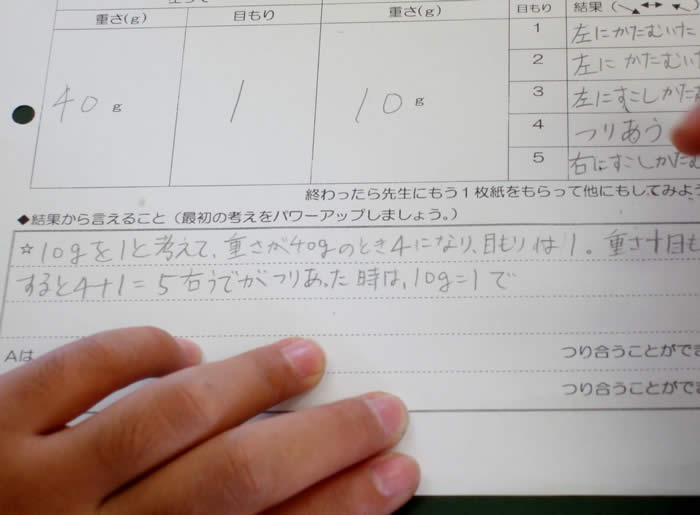 重さ(g) 目もり 重さ(g) 目もり 結果(
40 g 1 10 g
1 左にかたむいた
2 左にかたむいた
3 左にすこしかた
4 つりあう
5 右にすこしかたむ
終わったら先生にもう1枚紙をもらって他にもしてみよ
◆結果から言えること(最初の考えをパワーアップしましょう。)
☆10gを1と考えて、重さが40gのとき4になり、目もりは1。重さ+目も
すると4+1=5右うでがつりあった時は、10g=1で
Aは つり合うことがで
つり合うことがで